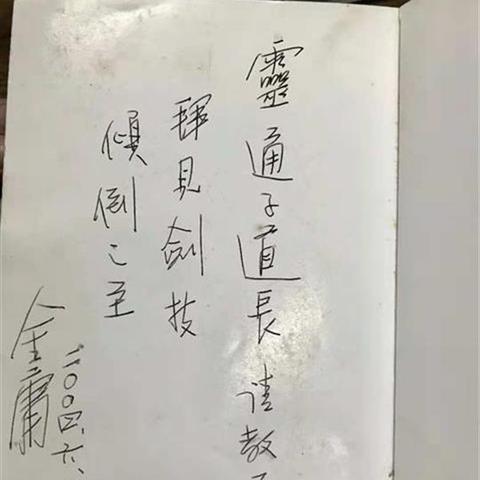 靈通子道長 请教
得見劍技
傾倒之至
金庸
二〇〇四.六.